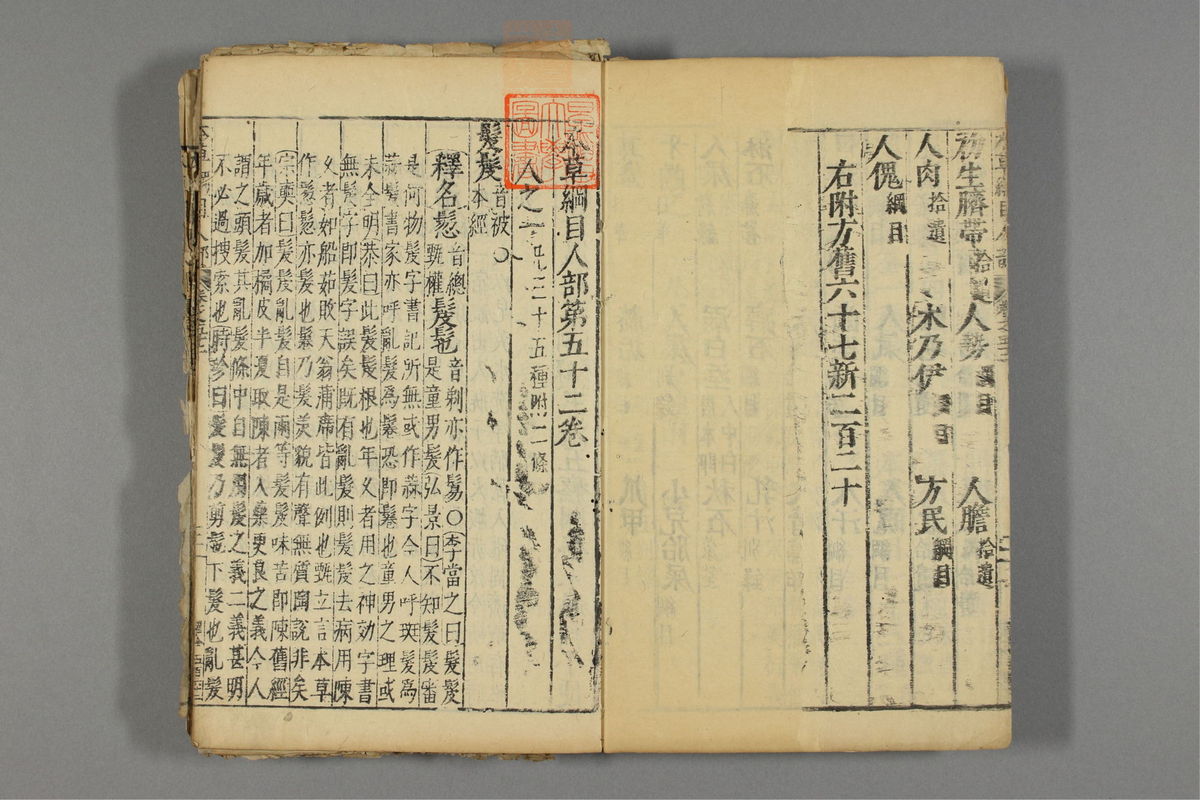 初生臍帶拾遺 人勢綱目 人膽拾遺
人肉拾遺 木乃伊綱目 方民綱目
人傀綱目
右附方舊六十七新二百二十
本草綱目人部第五十二卷
人之一凡三十五種附二條
髮髲音被本經
釋名鬊音總甄權髲髢音剃亦作鬄○李當之曰髮髲
是童男髮弘景曰不知髮髲審
是何物髮字書記所無或作蒜字今人呼斑髮為
蒜髮書家亦呼亂髮為鬊恐即鬊也童男之理或
未全明恭曰此髮髲根也年久者用之神効字書
無髲字即髮字誤矣既有亂髮則髮髲去病用陳
久者如船茹敗天翁蒲席皆此例也甄立言本草
作鬊鬊亦髮也鬊乃髮美貌有聲無質陶說非矣
宗奭曰髮髲亂髮自是兩等髮髲味苦即陳舊經
年歲者如橘皮半夏取陳者入藥更良之義今人
謂之頭髮其亂髮條中自無用髮之義二義甚明
不必過搜索也時珍曰髮髲乃剪髢下髮也亂髮